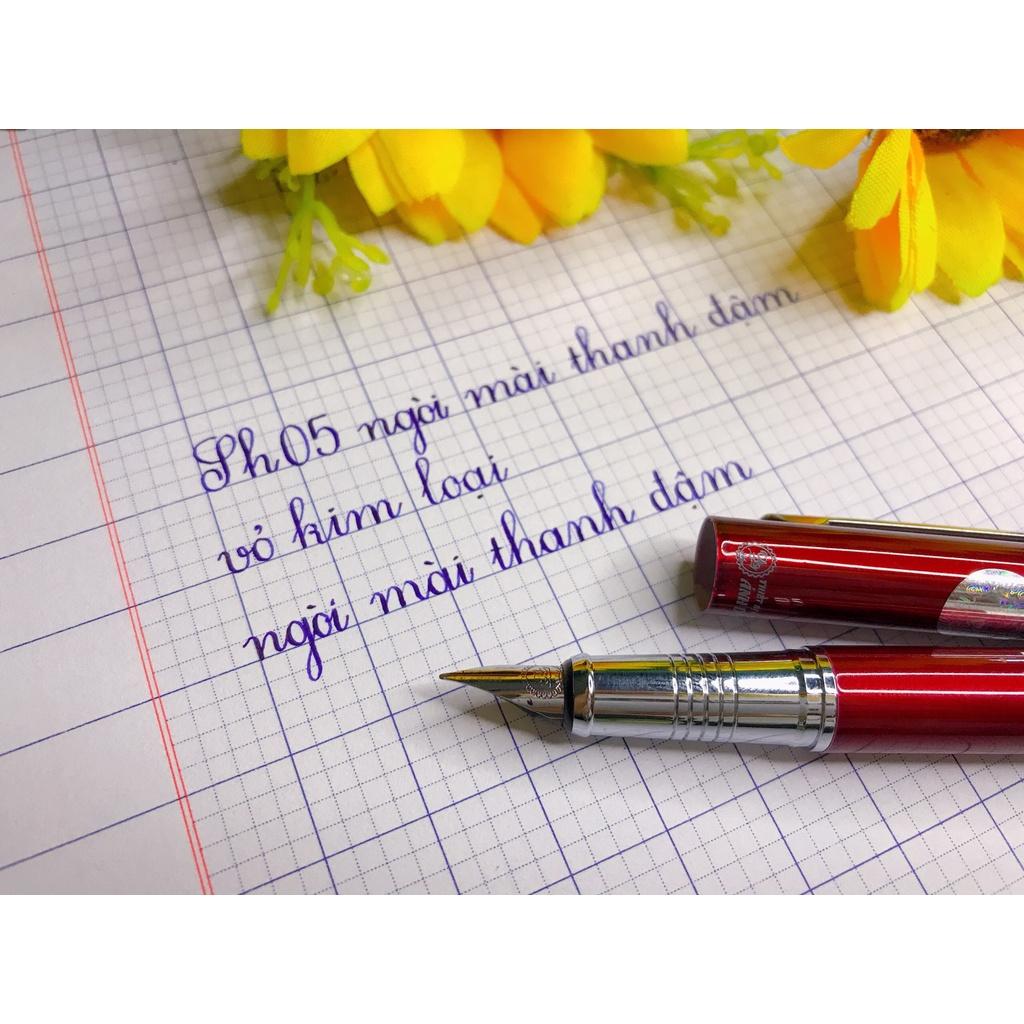 Sh05 ngòi mài thanh đậm
vỏ kim loại
ngòi mài thanh đậm